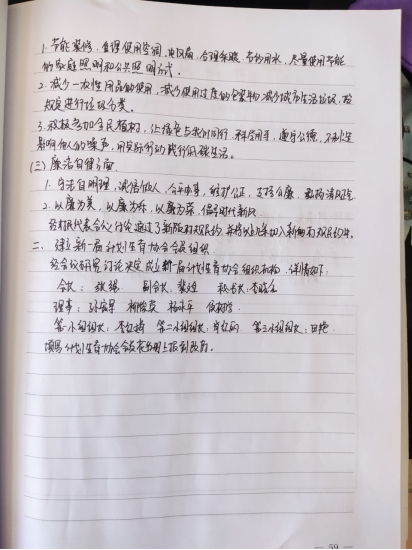 1.节能装修,合理使用空调、电风扇,合理采暖、节约用水,尽量使用节能
的家庭照明和公共照明方式。
2.减少一次性用品的使用,减少使用过度的包装物,减少城市生活垃圾,按
规定进行垃圾分类。
3.积极参加全民植树,让绿色与我们同行,科学用手,遵守公德,不制造
影响他人的噪声,用实际行动践行低碳生活。
(三)廉洁自律方面
1.守法自明理,诚信他人,公平办事,维护公正,支持公廉,
2.以廉为美,以廉为乐,以廉为荣,倡导时代新风
经村民代表会议讨论通过了新版村规民约,并将以上条切入新的村规民约中。
二、建立新一届计划生育协会会员组织
经会议研究讨论决定成立新一届计划生育协会组织机构,详情如下:
会长: 张 副会长:梁 秘书长:李
理事:孙 柳 杨 侯
第一小组组长:李 第二小组组长: 第三小组组长:田艳
填写计划生育协会会员花名册上报到政府。
— 59 —